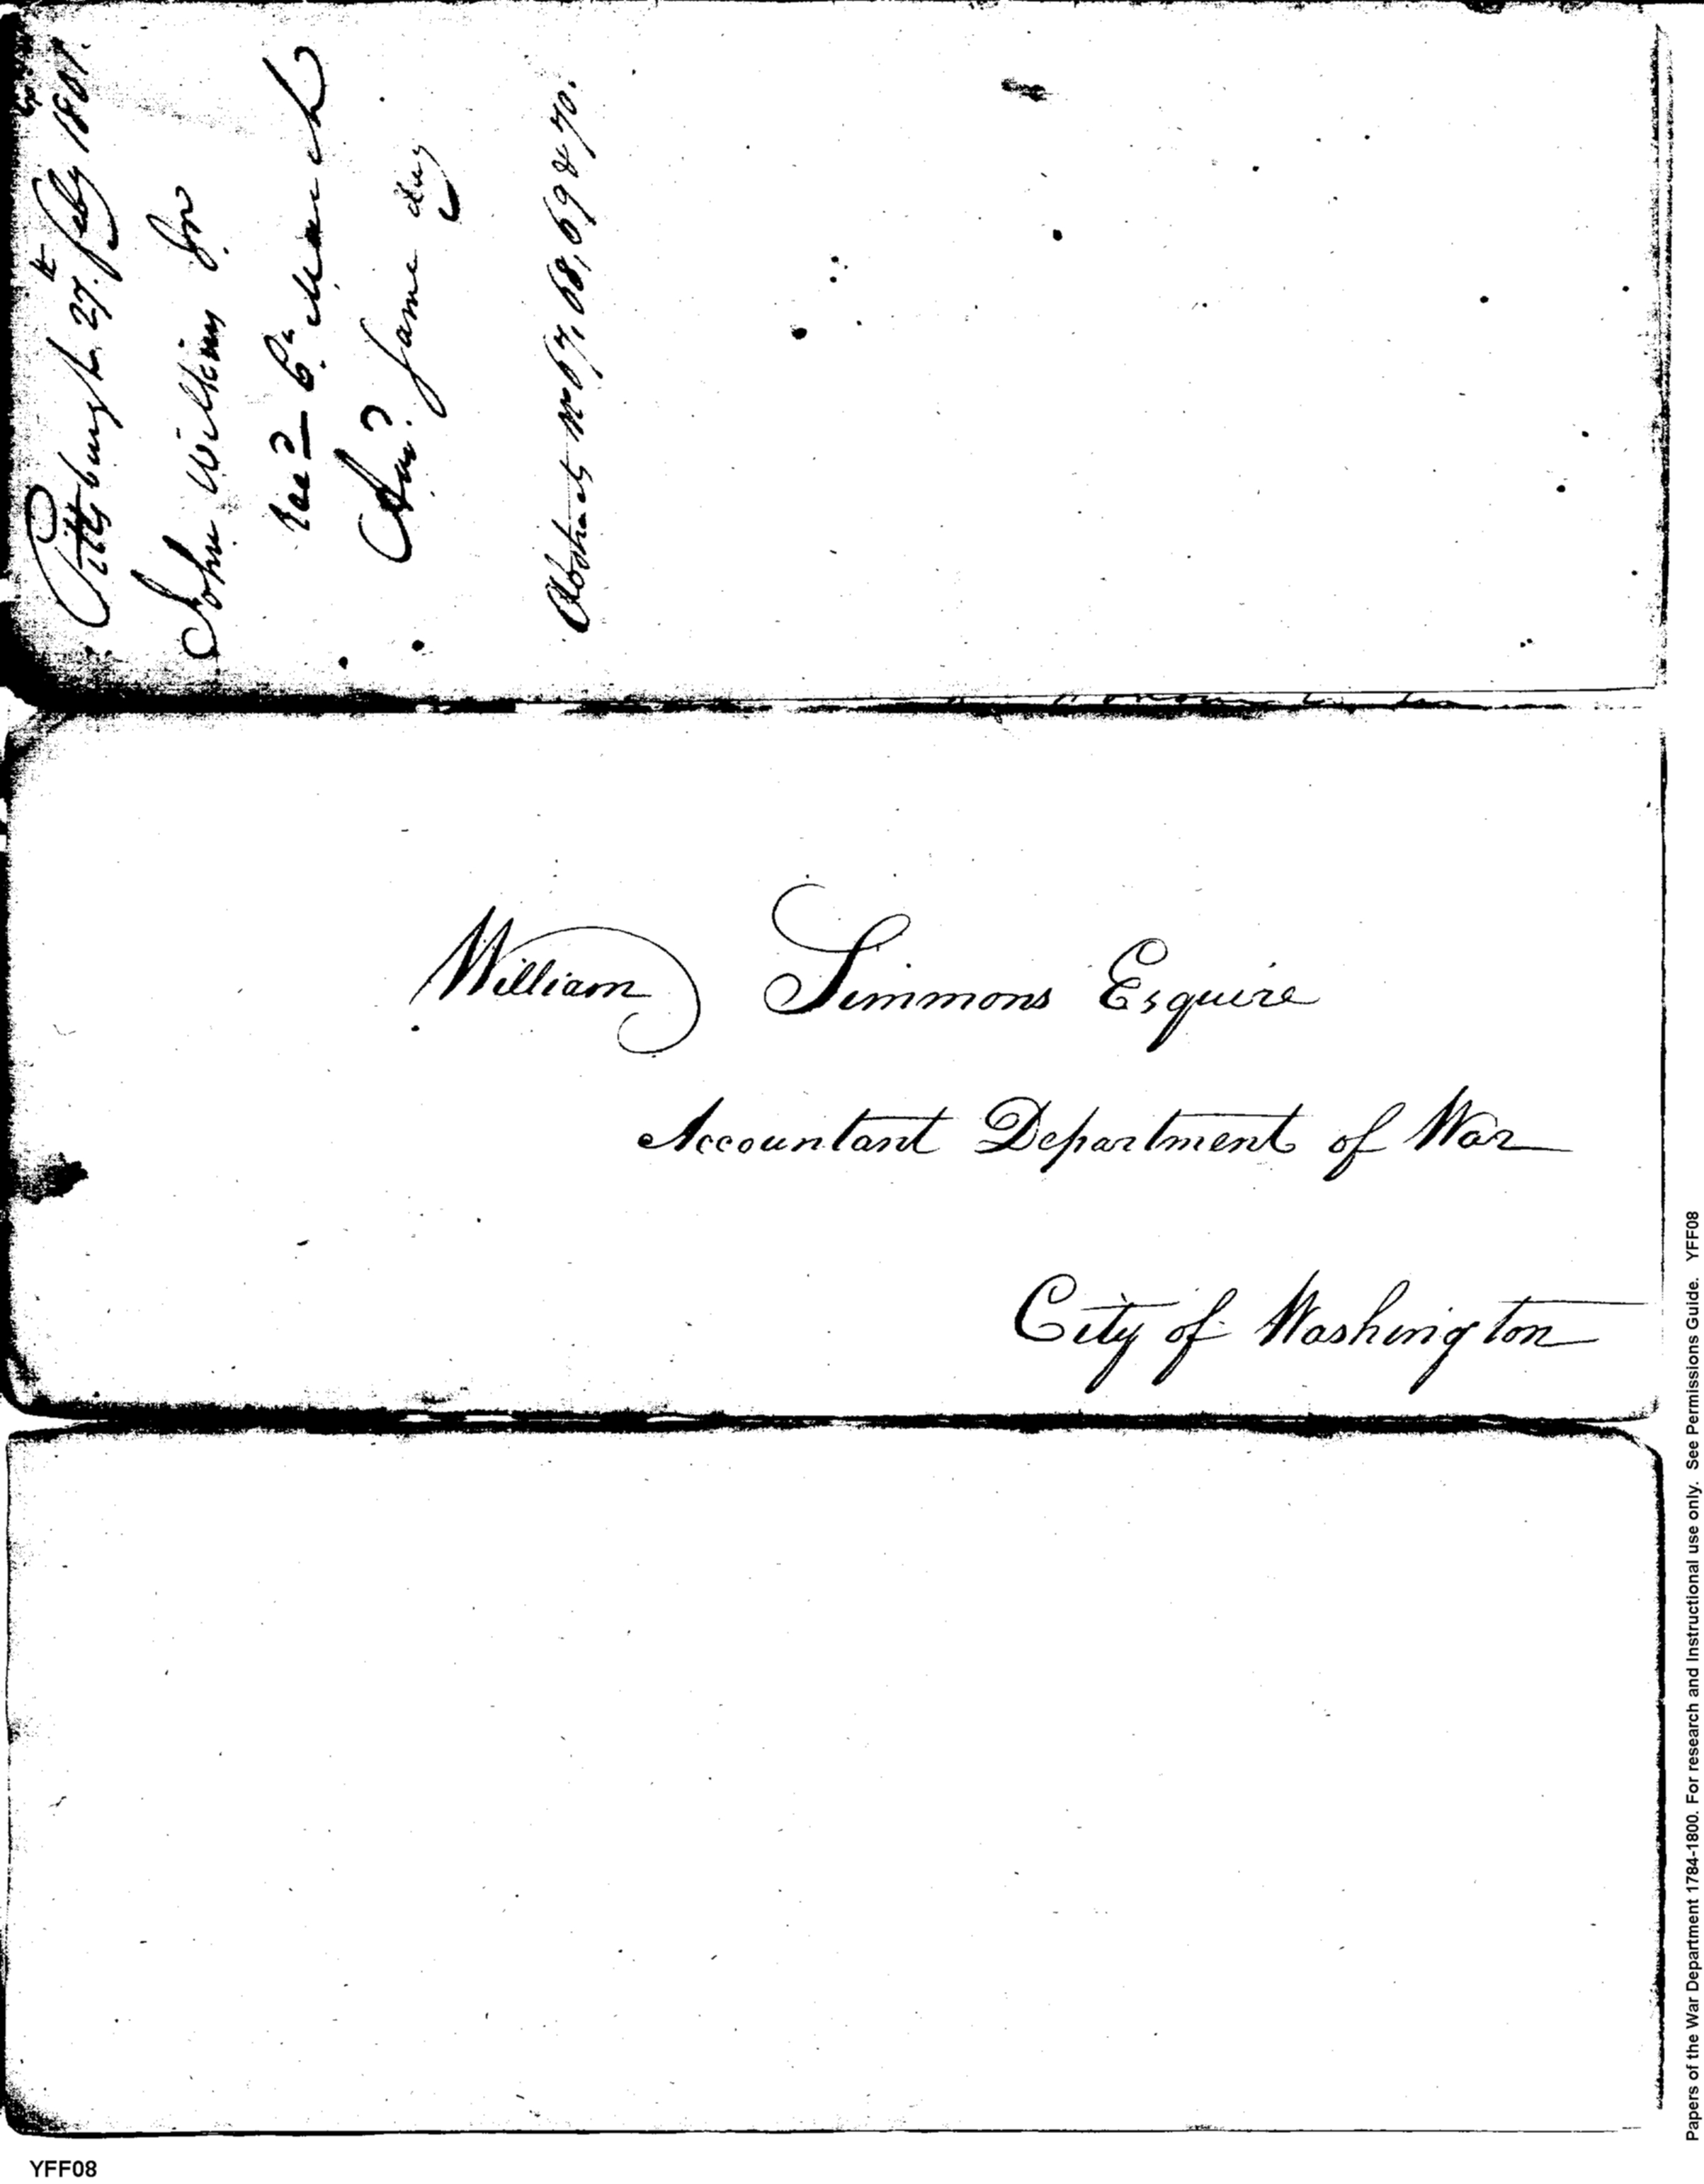 Pittsburgh 27.th Feby 1801.
John Wilkins Jnr
Recd 6th March
Ansd. same day
Abstracts No 67, 68, 69 & 70.
William Simmons Esquire
Accountant Department of War
City of Washington
Papers of the War Department 1784-1800. For research and Instructional use only. See Permissions Guide. YFF08
YFF08